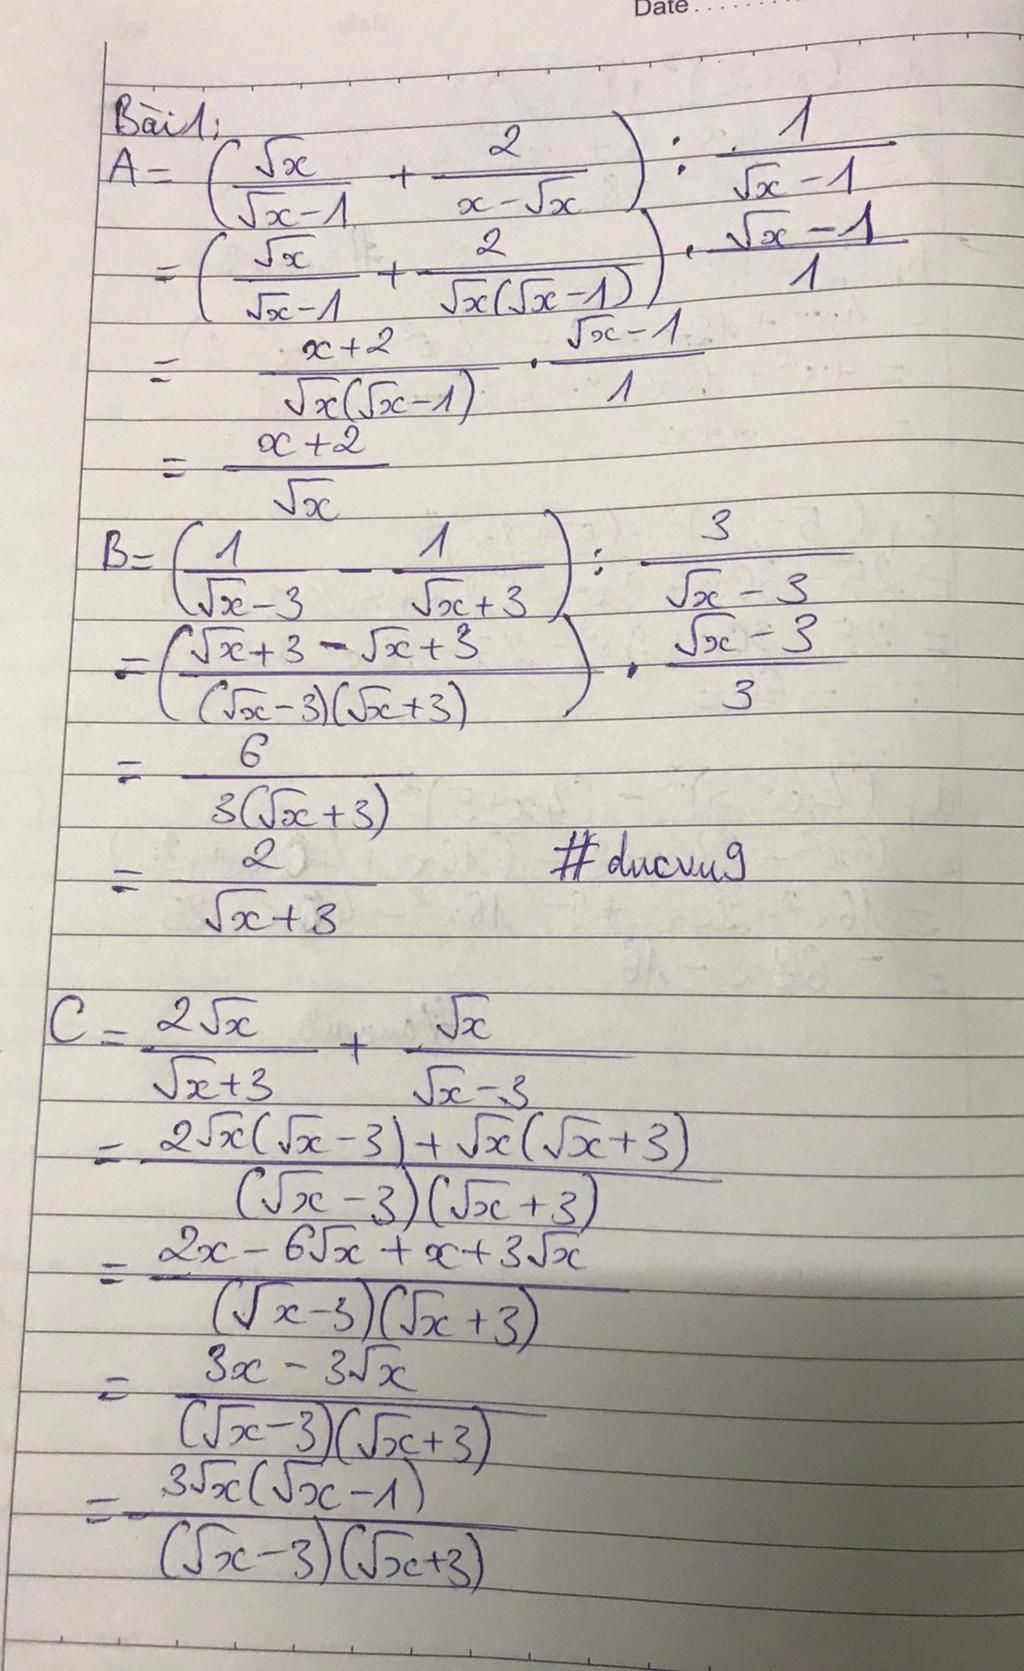 Date........
Bài 1:
A = (√x/(√x-1) + 2/(x-√x)) : 1/(√x-1)
= (√x/(√x-1) + 2/(√x(√x-1))) . (√x-1)/1
= (x+2)/(√x(√x-1)) . (√x-1)/1
= (x+2)/√x
B = (1/(√x-3) - 1/(√x+3)) : 3/(√x-3)
= ((√x+3-√x+3)/((√x-3)(√x+3))) . (√x-3)/3
= 6/(3(√x+3))
= 2/(√x+3)
C = 2√x/(√x+3) + √x/(√x-3)
= (2√x(√x-3)+√x(√x+3))/((√x-3)(√x+3))
= (2x-6√x+x+3√x)/((√x-3)(√x+3))
= (3x-3√x)/((√x-3)(√x+3))
= 3√x(√x-1)/((√x-3)(√x+3))